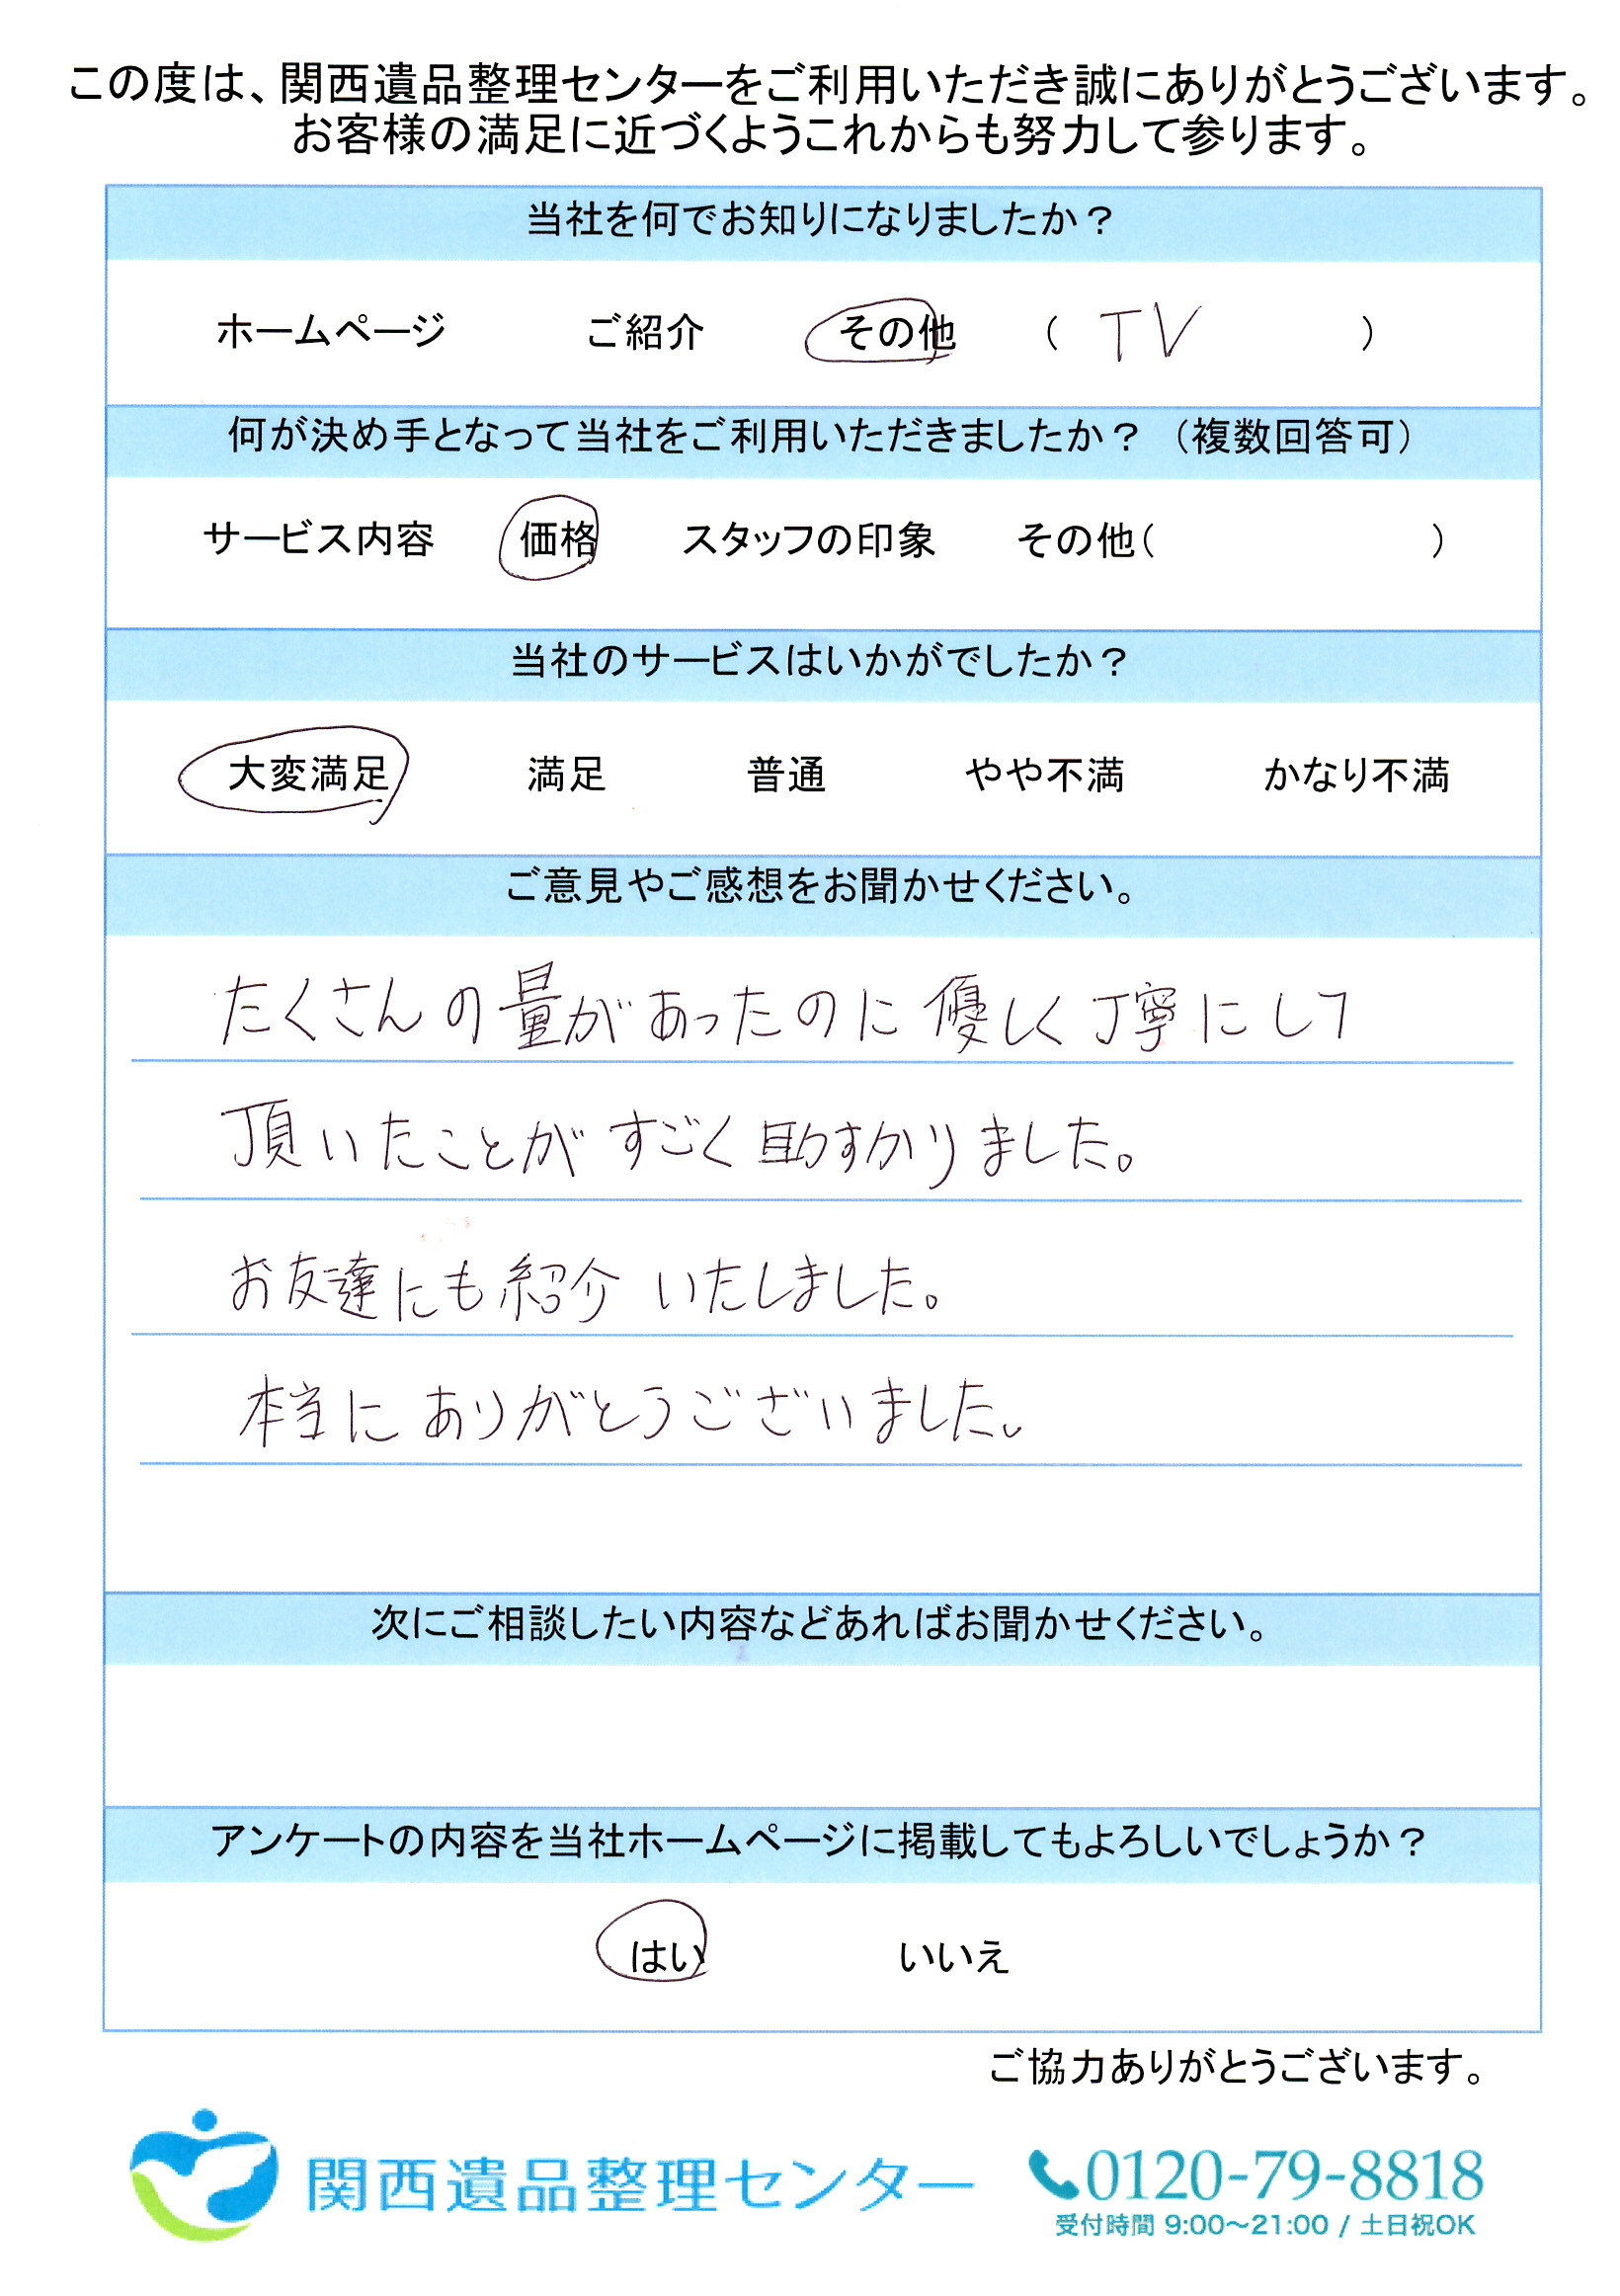 この度は、関西遺品整理センターをご利用いただき誠にありがとうございます。
お客様の満足に近づくようこれからも努力して参ります。
当社を何でお知りになりましたか？
ホームページ ご紹介 その他 （ TV ）
何が決め手となって当社をご利用いただきましたか？（複数回答可）
サービス内容 価格 スタッフの印象 その他（ ）
当社のサービスはいかがでしたか？
大変満足 満足 普通 やや不満 かなり不満
ご意見やご感想をお聞かせください。
たくさんの量があったのに優しく丁寧にして
頂いたことがすごく助すかりました。
お友達にも紹介いたしました。
本当にありがとうございました。
次にご相談したい内容などあればお聞かせください。
アンケートの内容を当社ホームページに掲載してもよろしいでしょうか？
はい いいえ
ご協力ありがとうございます。
関西遺品整理センター 0120-79-8818
受付時間 9:00～21:00 / 土日祝OK